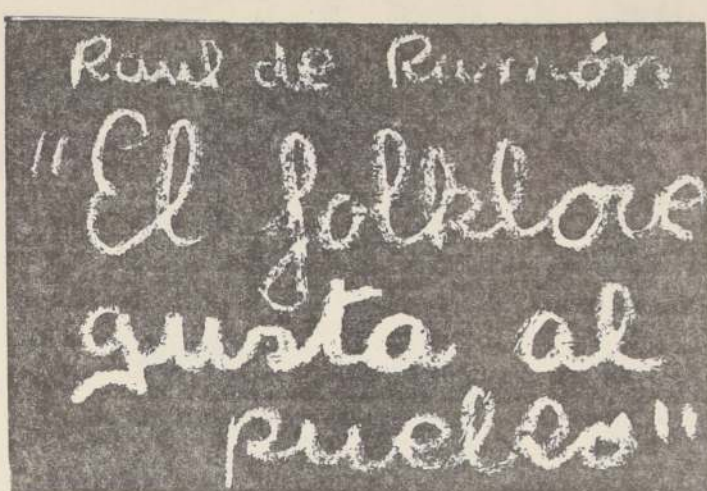 Raul de Ramón
"El folklore
gusta al
pueblo"